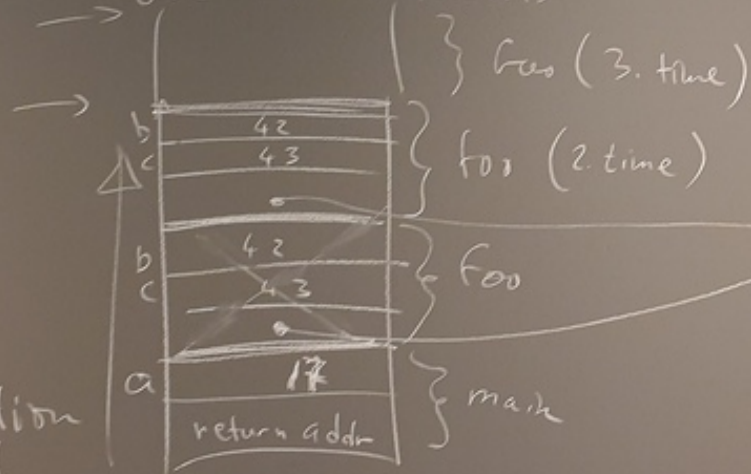 } foo (3. time)
b 42
c 43
} foo (2. time)
b 42
c 43
} foo
a 17
} main
return addr